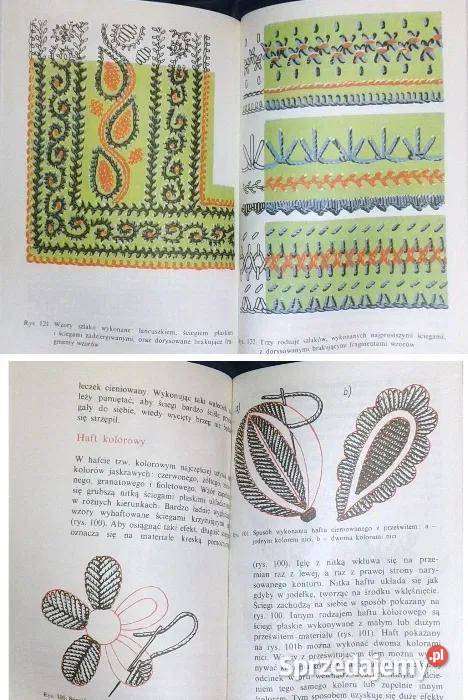 Rys. 121. Wzory szlaków wykonane łańcuszkiem, ściegiem płaskim
i ściegami zadzierganymi, oraz dorysowane brakujące fra-
gmenty wzorów
122. Trzy rodzaje szlaków, wykonanych najprostszymi ściegami,
z dorysowanymi brakującymi fragmentami wzorów
leczek cieniowany. Wykonując taki
leży pamiętać, aby ściegi bardzo ściśle
gały do siebie, wtedy wycięty brzeg nie
się strzępił.
Haft kolorowy
W hafcie tzw. kolorowym najczęściej
kolorów jaskrawych: czerwonego,
nego, granatowego i fioletowego.
się grubszą nitką ściegami płaskimi
w różnych kierunkach. Bardzo ładnie
wzory wyhaftowane ściegami
(rys. 100). Aby osiągnąć taki efekt,
oznacza się na materiale kreską
a)
b)
101. Sposób wykonania haftu cieniowanego z prześwitem: a –
jednym kolorem nici, b – dwoma kolorami nici
(rys. 100). Igłę z nitką wkłuwa się na prze-
mian raz z lewej, a raz z prawej strony nary-
sowanego konturu. Nitka haftu układa się jak
gdyby w jodełkę, tworząc na środku wklęśnięcie.
Ściegi zachodzą na siebie w sposób pokazany na
rys. 100. Innym rodzajem haftu kolorowego są
ściegi płaskie wykonywane z małym lub dużym
prześwitem materiału (rys. 101). Haft pokazany
na rys. 101b można wykonać dwoma kolorami
nici. W
kolor
odcie-
niem tego samego koloru lub zupełnie innym
kolorem. Tym sposobem uzyskuje się duże efekty
Rys. 100.
Sprzedajemy.pl
Sprzedajemy.pl